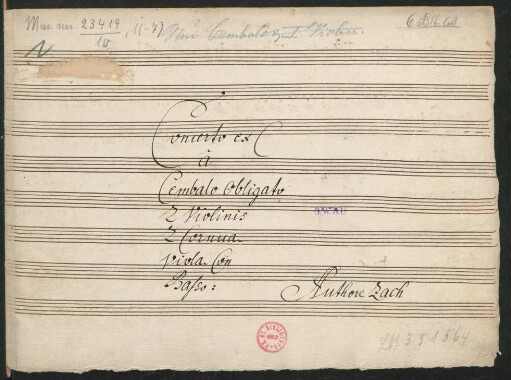 Mus. ms. 23419/10, 1(-7) Nur Cembalo u. I. Violin.
Concerto ex C
à
Cembalo Obligato
2 Violinis
2 Cornua
Viola Con
Basso:
Authore Zach